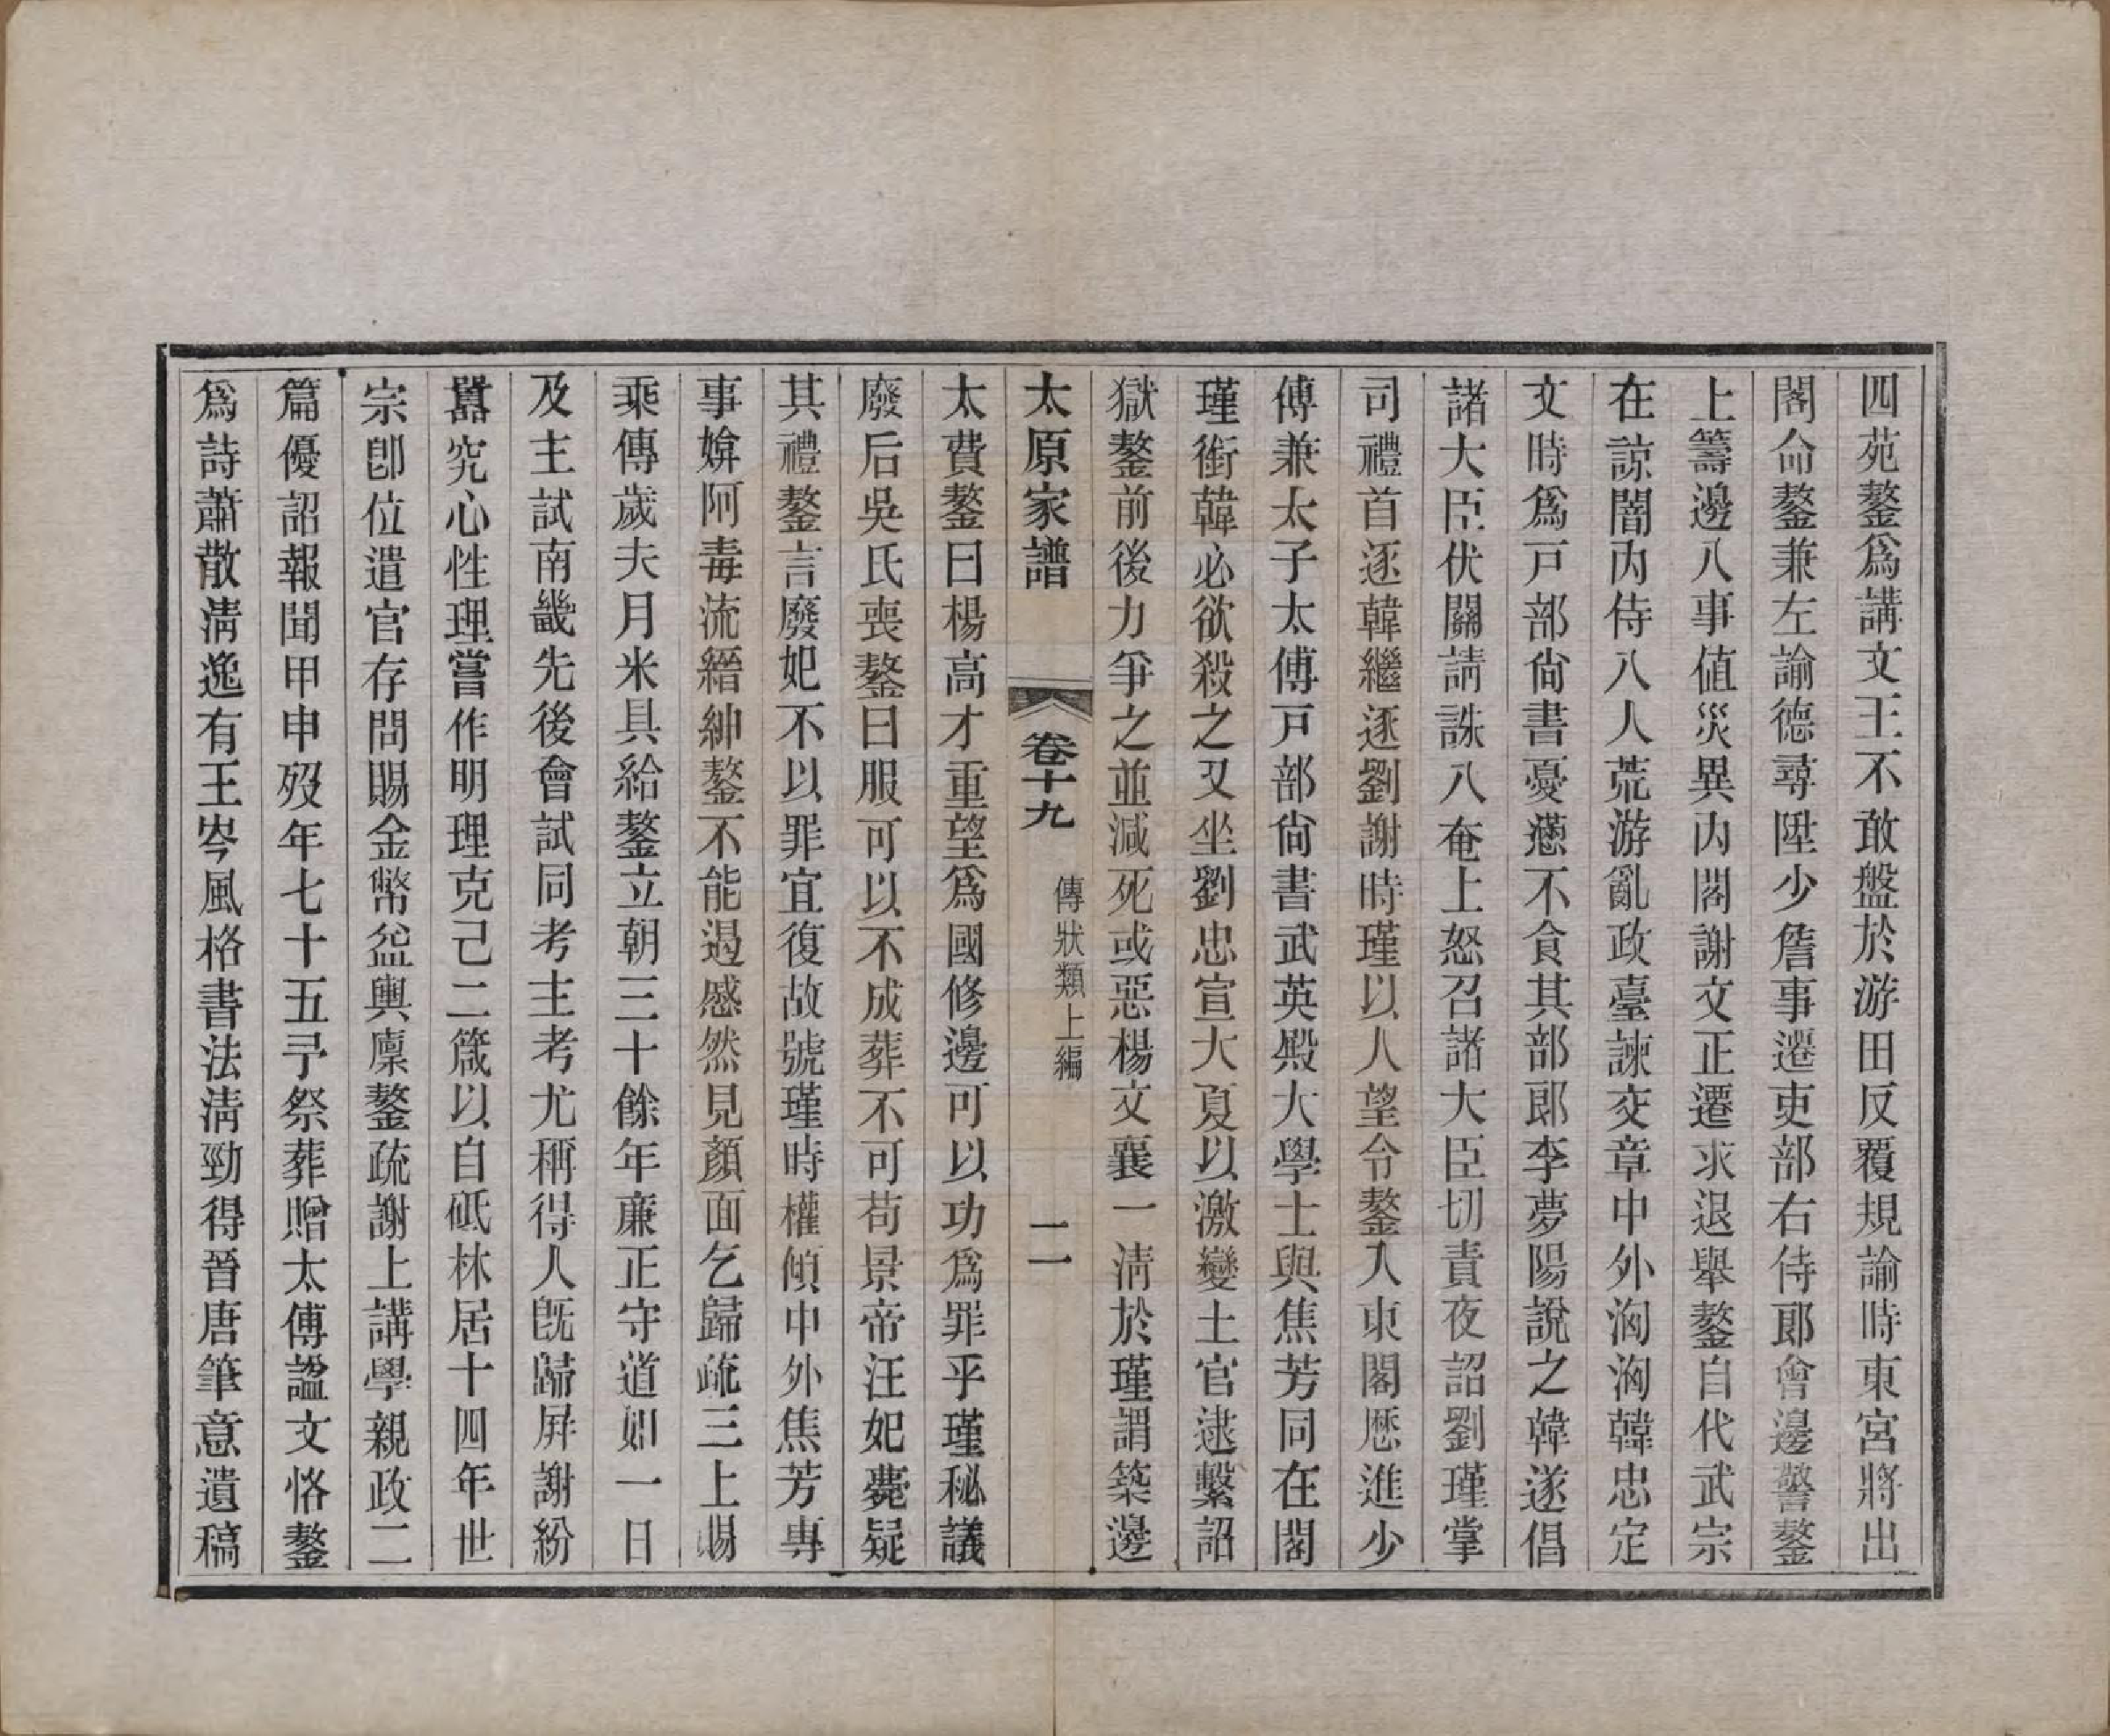 四苑鏊爲講文王不敢盤於游田反覆規諭時東宮將出
閣命鏊兼左諭德尋陞少詹事遷吏部右侍郎會邊警鏊
上籌邊八事值災異內閣謝文正遷求退舉鏊自代武宗
在諒闇內侍八人荒游亂政臺諫交章中外洶洶韓忠定
文時爲戸部尚書憂懣不食其部郎李夢陽說之韓遂倡
諸大臣伏闕請誅八奄上怒召諸大臣切責夜詔劉瑾掌
司禮首逐韓繼逐劉謝時瑾以人望令鏊入東閣歷進少
傅兼太子太傅戸部尚書武英殿大學士與焦芳同在閣
瑾銜韓必欲殺之又坐劉忠宣大夏以激變土官逮繫詔
獄鏊前後力爭之並減死或惡楊文襄一清於瑾謂築邊
太原家譜 卷十九 傳狀類上編 二一
太費鏊曰楊高才重望爲國修邊可以功爲罪乎瑾秘議
廢后吳氏喪鏊曰服可以不成葬不可苟景帝汪妃薨疑
其禮鏊言廢妃不以罪宜復故號瑾時權傾中外焦芳專
事媕阿毒流縉紳鏊不能遏慼然見顏面乞歸疏三上賜
乘傳歲夫月米具給鏊立朝三十餘年廉正守道如一日
及主試南畿先後會試同考主考尤稱得人旣歸屏謝紛
囂究心性理嘗作明理克己二箴以自砥林居十四年世
宗卽位遣官存問賜金幣益輿廩鏊疏謝上講學親政二
篇優詔報聞甲申歿年七十五予祭葬贈太傅諡文恪鏊
爲詩蕭散清逸有王岑風格書法清勁得晉唐筆意遺稿